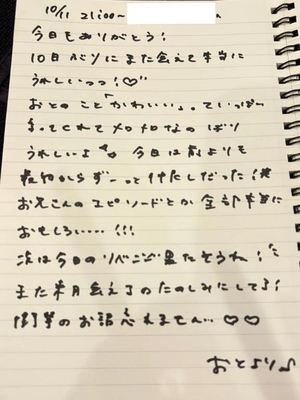 10/11 21:00~
今日もありがとう!
10日ぶりにまた会えて本当に
うれしいっっ!♡
おとのこと「かわいい」っていっぱい
言ってくれてメロメロなのばり
うれしいよ 今日は前よりも
最初からずーっと
お兄さんのエピソードとか全部本当に
おもしろい……!!!
次は今日のリベンジ果たそうね!
また来月会えるのたのしみにしてる!
のお話忘れません…♡♡
おとより♪